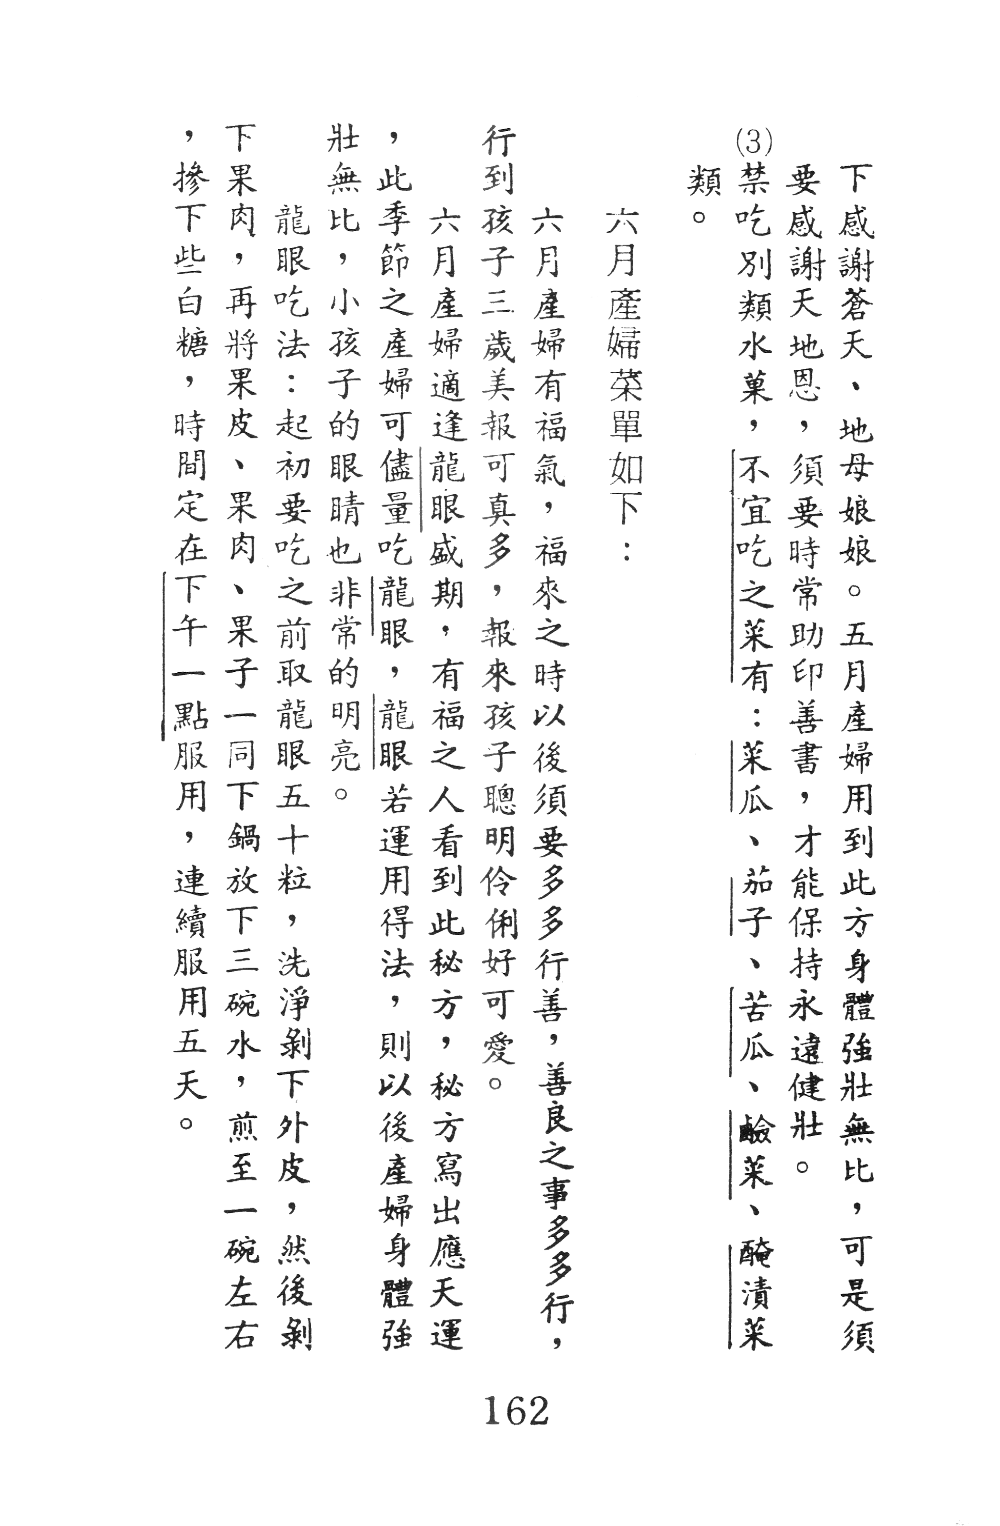 下感謝蒼天、地母娘娘。五月產婦用到此方身體強壯無比，可是須
要感謝天地恩，須要時常助印善書，才能保持永遠健壯。
(3)禁吃別類水菓，不宜吃之菜有：菜瓜、茄子、苦瓜、鹼菜、醃漬菜
類。
六月產婦菜單如下：
六月產婦有福氣，福來之時以後須要多多行善，善良之事多多行，
行到孩子三歲美報可真多，報來孩子聰明伶俐好可愛。
六月產婦適逢龍眼盛期，有福之人看到此秘方，秘方寫出應天運
，此季節之產婦可儘量吃龍眼，龍眼若運用得法，則以後產婦身體強
壯無比，小孩子的眼睛也非常的明亮。
龍眼吃法：起初要吃之前取龍眼五十粒，洗淨剝下外皮，然後剝
下果肉，再將果皮、果肉、果子一同下鍋放下三碗水，煎至一碗左右
，摻下些白糖，時間定在下午一點服用，連續服用五天。
162